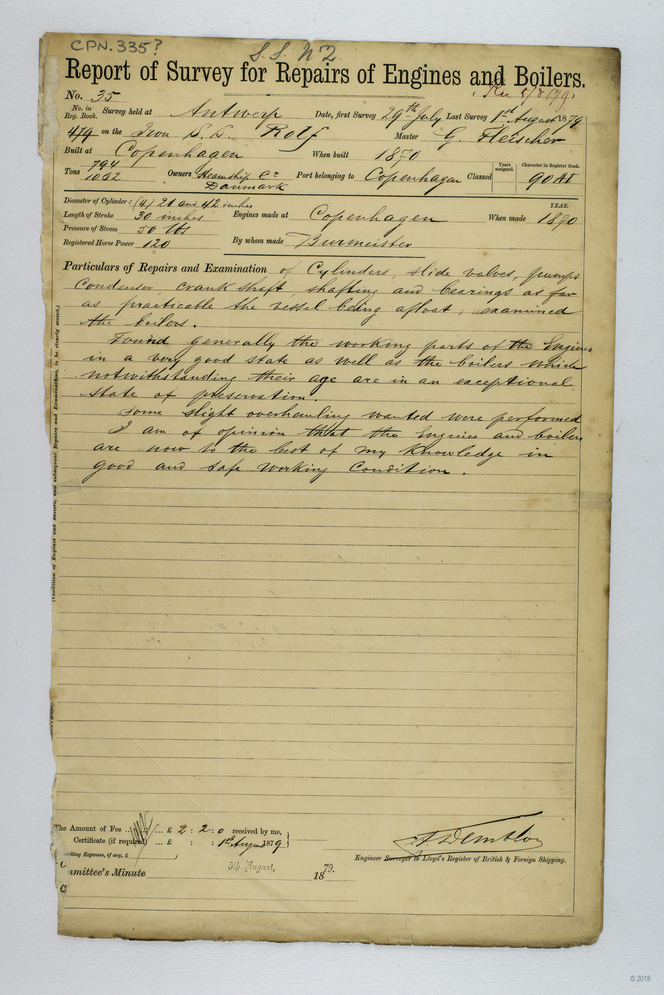 CPN. 335?
S.S. No 2
Report of Survey for Repairs of Engines and Boilers.
No. 35
Rec 5/8/79
No. in Reg. Book. Survey held at Antwerp Date, first Survey 29th July Last Survey 1st August 1879
479 on the Iron S.S. Rolf Master G. Fleischer
Built at Copenhagen When built 1870
Tons 794 1092 Owners Steamship Co Danmark Port belonging to Copenhagen Classed Years assigned. Character in Register Book. 90 A1
Diameter of Cylinder: (4) 21 and 42 inches
Length of Stroke 30 inches Engines made at Copenhagen When made YEAR. 1870
Pressure of Steam 50 lbs
Registered Horse Power 120 By whom made Burmeister
Particulars of Repairs and Examination of Cylinders, slide valves, pumps
Condenser, crank shaft, shafting and bearings as far
as practicable the vessel being afloat; examined
the boilers.
Found generally the working parts of the Engines
in a very good state as well as the boilers which
notwithstanding their age are in an exceptional
state of preservation.
Some slight overhauling wanted were performed
I am of opinion that the Engines and boilers
are now to the best of my knowledge in
good and safe working condition.
The Amount of Fee ... £ 2 : 2 : 0 received by me,
Certificate (if required) ... £ : : 1st August 1879
elling Expenses, if any, £
Engineer Surveyor to Lloyd's Register of British & Foreign Shipping.
mmittee's Minute 5th August, 1879.
© 2018